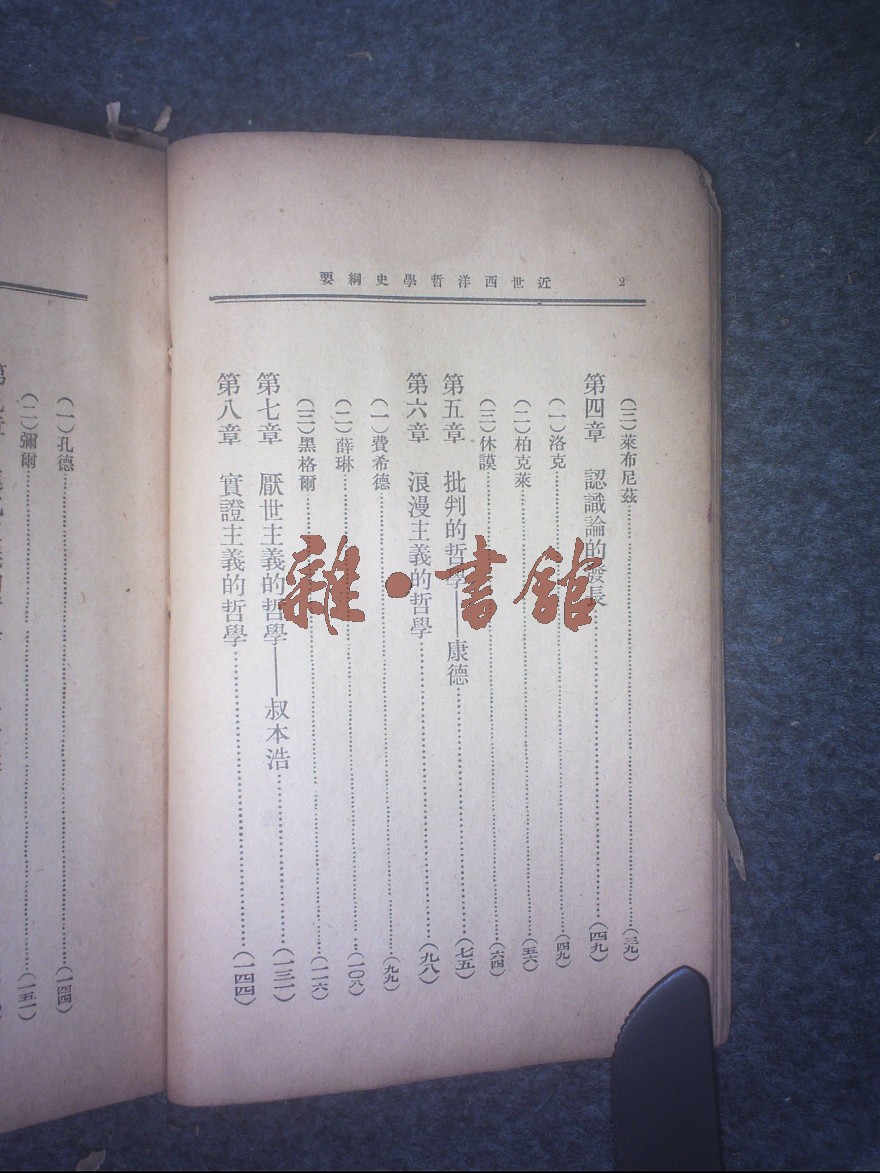 近世西洋哲學史綱要
2
(三)萊布尼茲……(三九)
第四章 認識論的發長……(四九)
(一)洛克……(四九)
(二)柏克萊……(五六)
(三)休謨……(六四)
第五章 批判的哲學——康德……(七五)
第六章 浪漫主義的哲學……(九八)
(一)費希德……(九九)
(二)薛琳……(一〇八)
(三)黑格爾……(一一六)
第七章 厭世主義的哲學——叔本浩……(一三一)
第八章 實證主義的哲學……(一四四)
(一)孔德……(一四四)
(二)彌爾……(一五一)
雜·書館